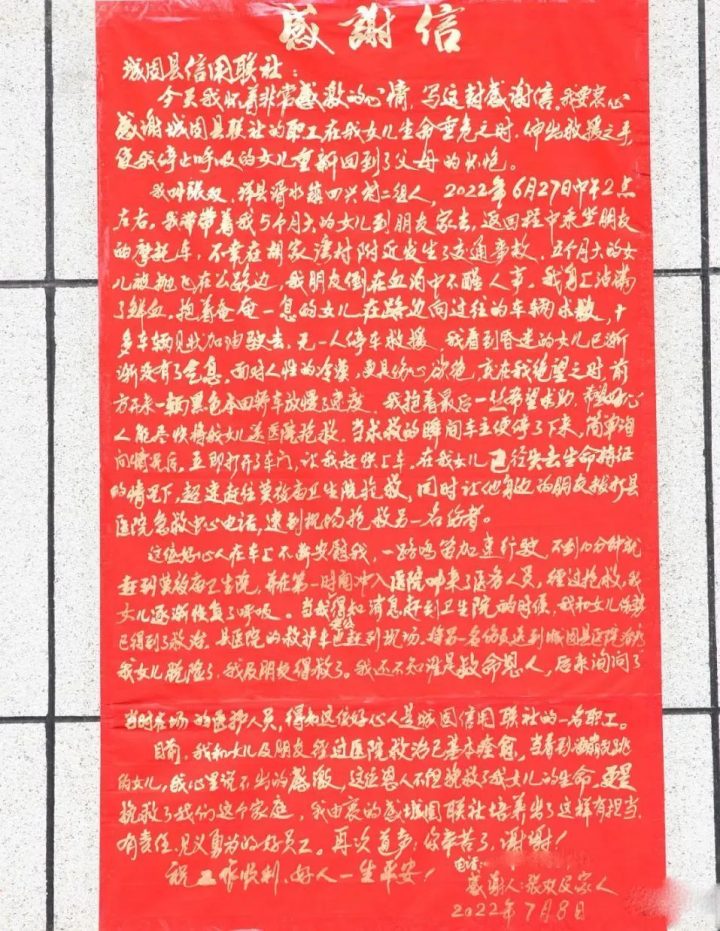 感謝信
城固县信用联社：
今天我怀着非常感激的心情，写这封感谢信。我要衷心
感谢城固县联社的职工在我女儿生命垂危之时，伸出救援之手
使我停止呼吸的女儿重新回到了父母的怀抱。
我叫张双，洋县谢村镇四兴村二组人，2022年6月27日中午2点
左右。我带带着我5个月大的女儿到朋友家去，返回程中乘坐朋友
的摩托车，不幸在胡家湾村附近发生了交通事故，五个月大的女
儿被抛已在公路边，我朋友倒在血泊中不醒人事。我身上沾满
了鲜血。抱着奄奄一息的女儿在路边向过往的车辆求救，十
多车辆见状加油驶去，无一人停车救援 我看到昏迷的女儿已渐
渐没有了气息。面对人性的冷漠，更具伤心欲绝，就在我绝望之时，前
方开来一辆黑色本田轿车放慢了速度，我抱着最后一丝希望求助，希望好心
人能尽快将我女儿送医院抢救，当求救的瞬间车主便停了下来，简单询
问情况后，立即打开了车门，让我赶快上车，在我女儿已经失去生命特征
的情况下，超速赶往莫 庙卫生院抢救，同时让他身边的朋友拨打县
医院急救中心电话，速到现场抢救另一名伤者。
这位好心人在车上不断安慰我，一路鸣笛加速行驶，不到10分钟就
赶到莫 庙卫生院，并在第一时间冲入医院叫来了医务人员，经过抢救，我
女儿逐渐恢复了呼吸。当我得知消息赶到卫生院的时候，我和女儿
已得到了救治，县医院的救护车也赶到现场，将另一名伤员送到城固县医院治疗
我女儿脱险了，我及朋友得救了。我还不知谁是救命恩人，后来询问了
当时在场的医护人员，得知这位好心人是城固信用联社的一名职工。
目前，我和女儿及朋友经过医院救治已基本痊愈，当看到活蹦乱跳
的女儿，我心里说不出的感激，这位恩人不但挽救了我女儿的生命，更是
挽救了我们这个家庭，我由衷的感城固联社培养出了这样有担当，
有责任，见义勇为的好员工。再次道声：你辛苦了，谢谢！
祝工作顺利，好人一生平安！
电话：
感谢人：张双及家人
2022年7月8日